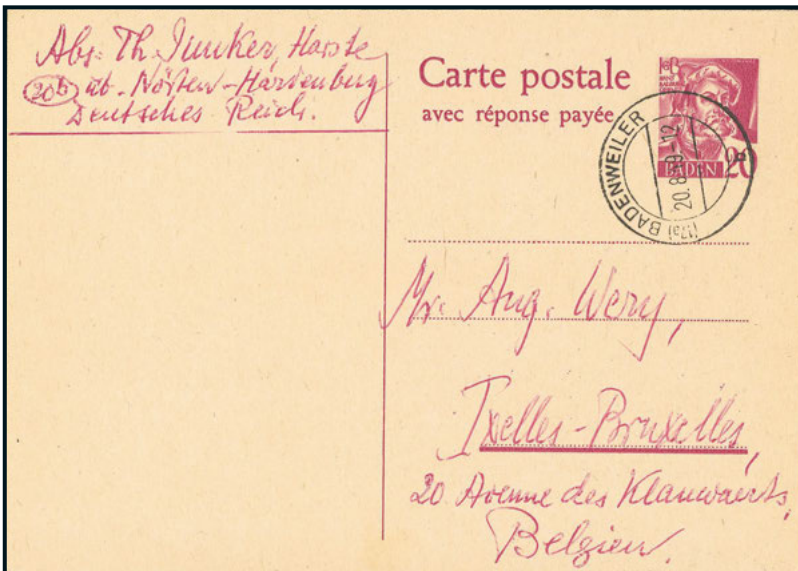 Abs. Th. Junker, Harste
(20b) üb. Nörten-Hardenburg
Deutsches Reich.
Carte postale
avec réponse payée
BADEN 20
(17a) BADENWEILER
20.8.49-12
a
Mr. Aug. Wery,
Ixelles-Bruxelles,
20 Avenue des Klauwaerts,
Belgien.